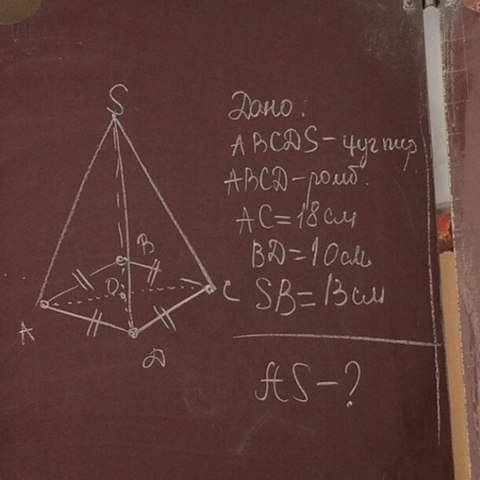 S
B
O
A
C
D
Дано:
ABCDS - 4уг пир
ABCD - ромб.
AC = 18 см
BD = 10 см
SB = 13 см
AS - ?